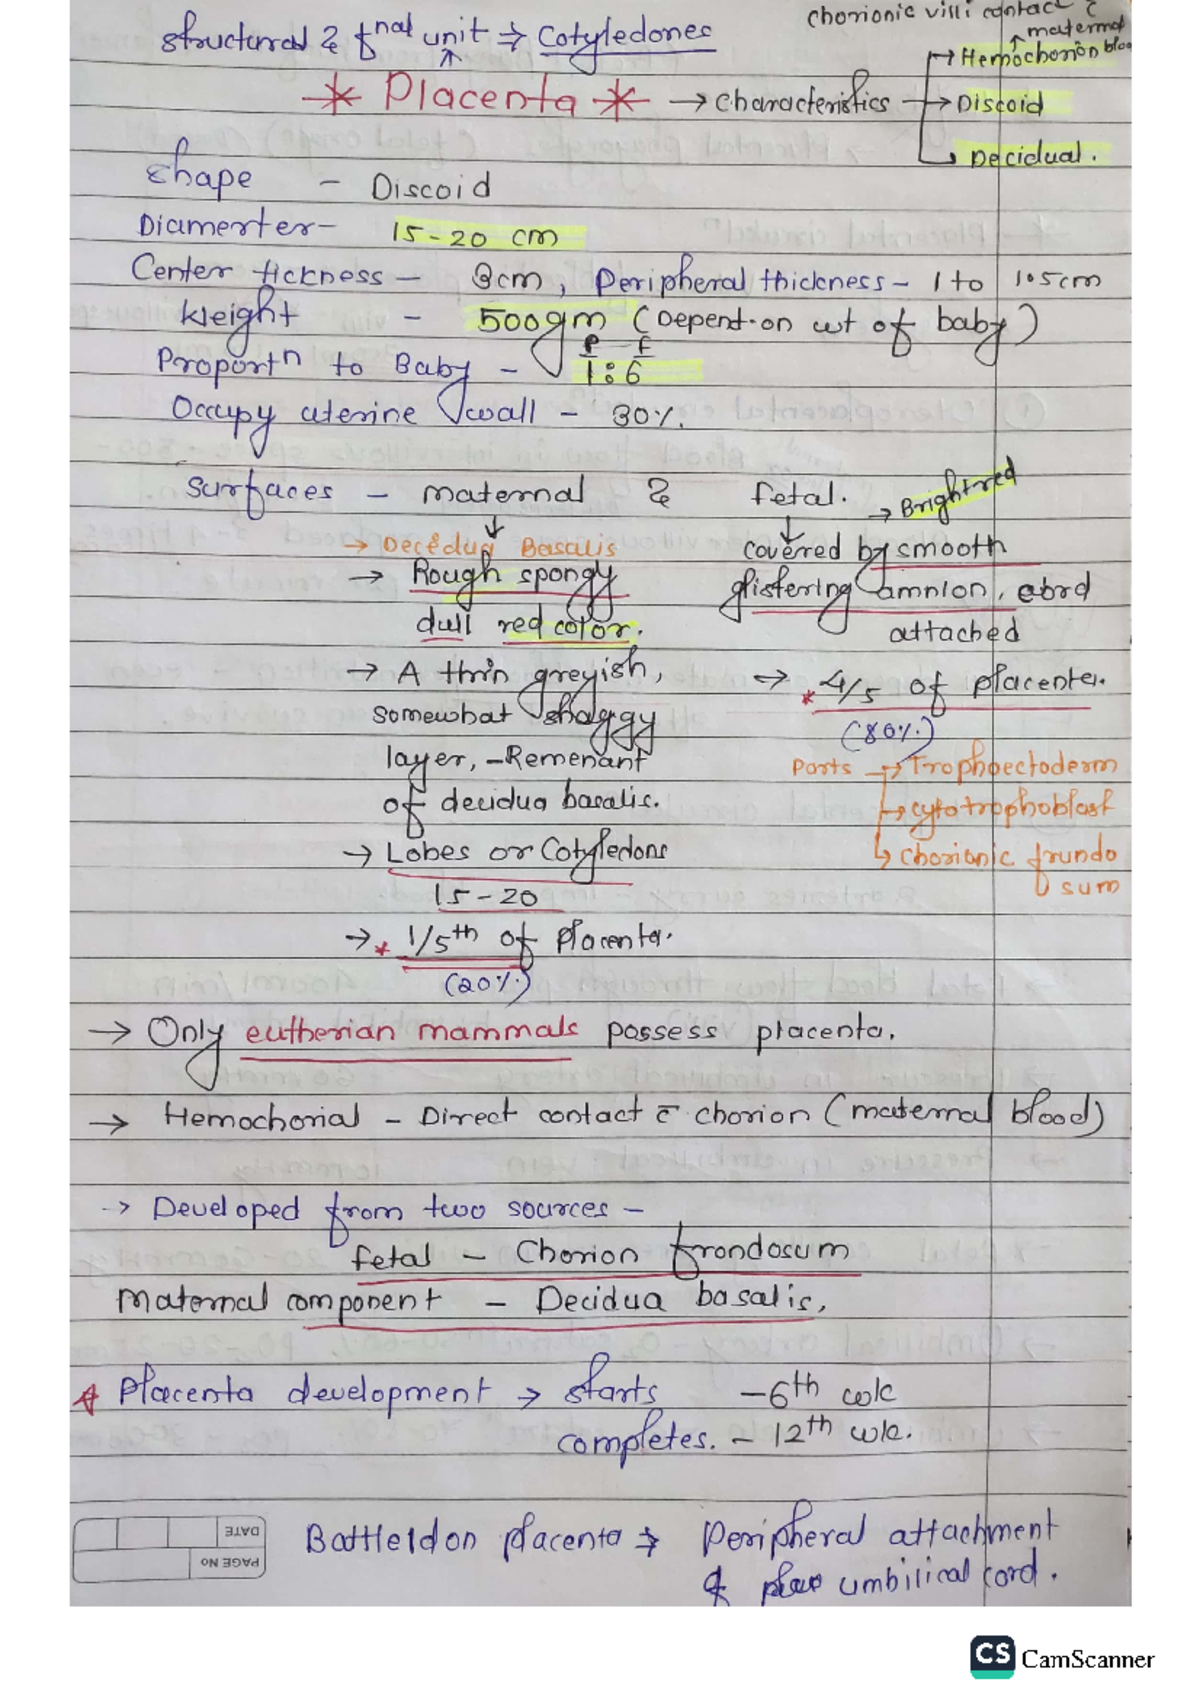 chorionic villi contact c̄
maternal
structural & fnal unit ⇒ Cotyledones
→ Hemochorion bloo
* Placenta * → characteristics → Discoid
Decidual.
Shape - Discoid
Diamerter- 15-20 cm
Center tickness - 3cm, Peripheral thickness - 1 to 1.5cm
Weight - 500gm (Depend.on wt of baby)
P F
Proportn to Baby - 1:6
Occupy uterine wall - 30%.
Surfaces - maternal & fetal. → Brightred
→ Decidua Basalis covered by smooth
→ Rough spongy glistering amnion, cord
dull red color. attached
→ A thin greyish, → * 4/5 of placenta.
somewhat shaggy (80%)
layer, -Remenant Parts → Trophoectoderm
of decidua basalis. → cytotrophoblast
→ Lobes or Cotyledons → chorionic frundo
15-20 sum
→ * 1/5th of Placenta.
(20%)
→ Only eutherian mammals possess placenta.
→ Hemochorial - Direct contact c̄ chorion (maternal blood)
→ Developed from two sources -
fetal - Chorion frondosum
Maternal component - Decidua basalis.
* Placenta development → starts - 6th wk
completes. - 12th wk.
DATE
PAGE NO
Battleldon placenta → Peripheral attachment
of umbilical cord.
CS CamScanner